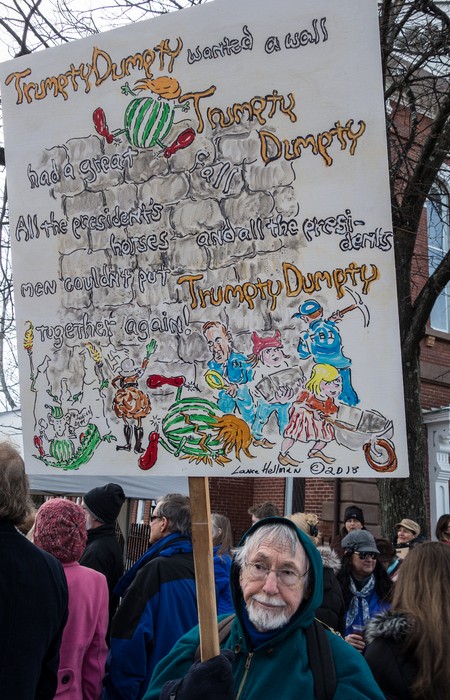 Trumpty Dumpty wanted a wall
Trumpty
Dumpty
had a great fall
All the presidents
horses and all the presi-
dents
men couldn't put Trumpty Dumpty
together again!
Laure Hellman © 2018